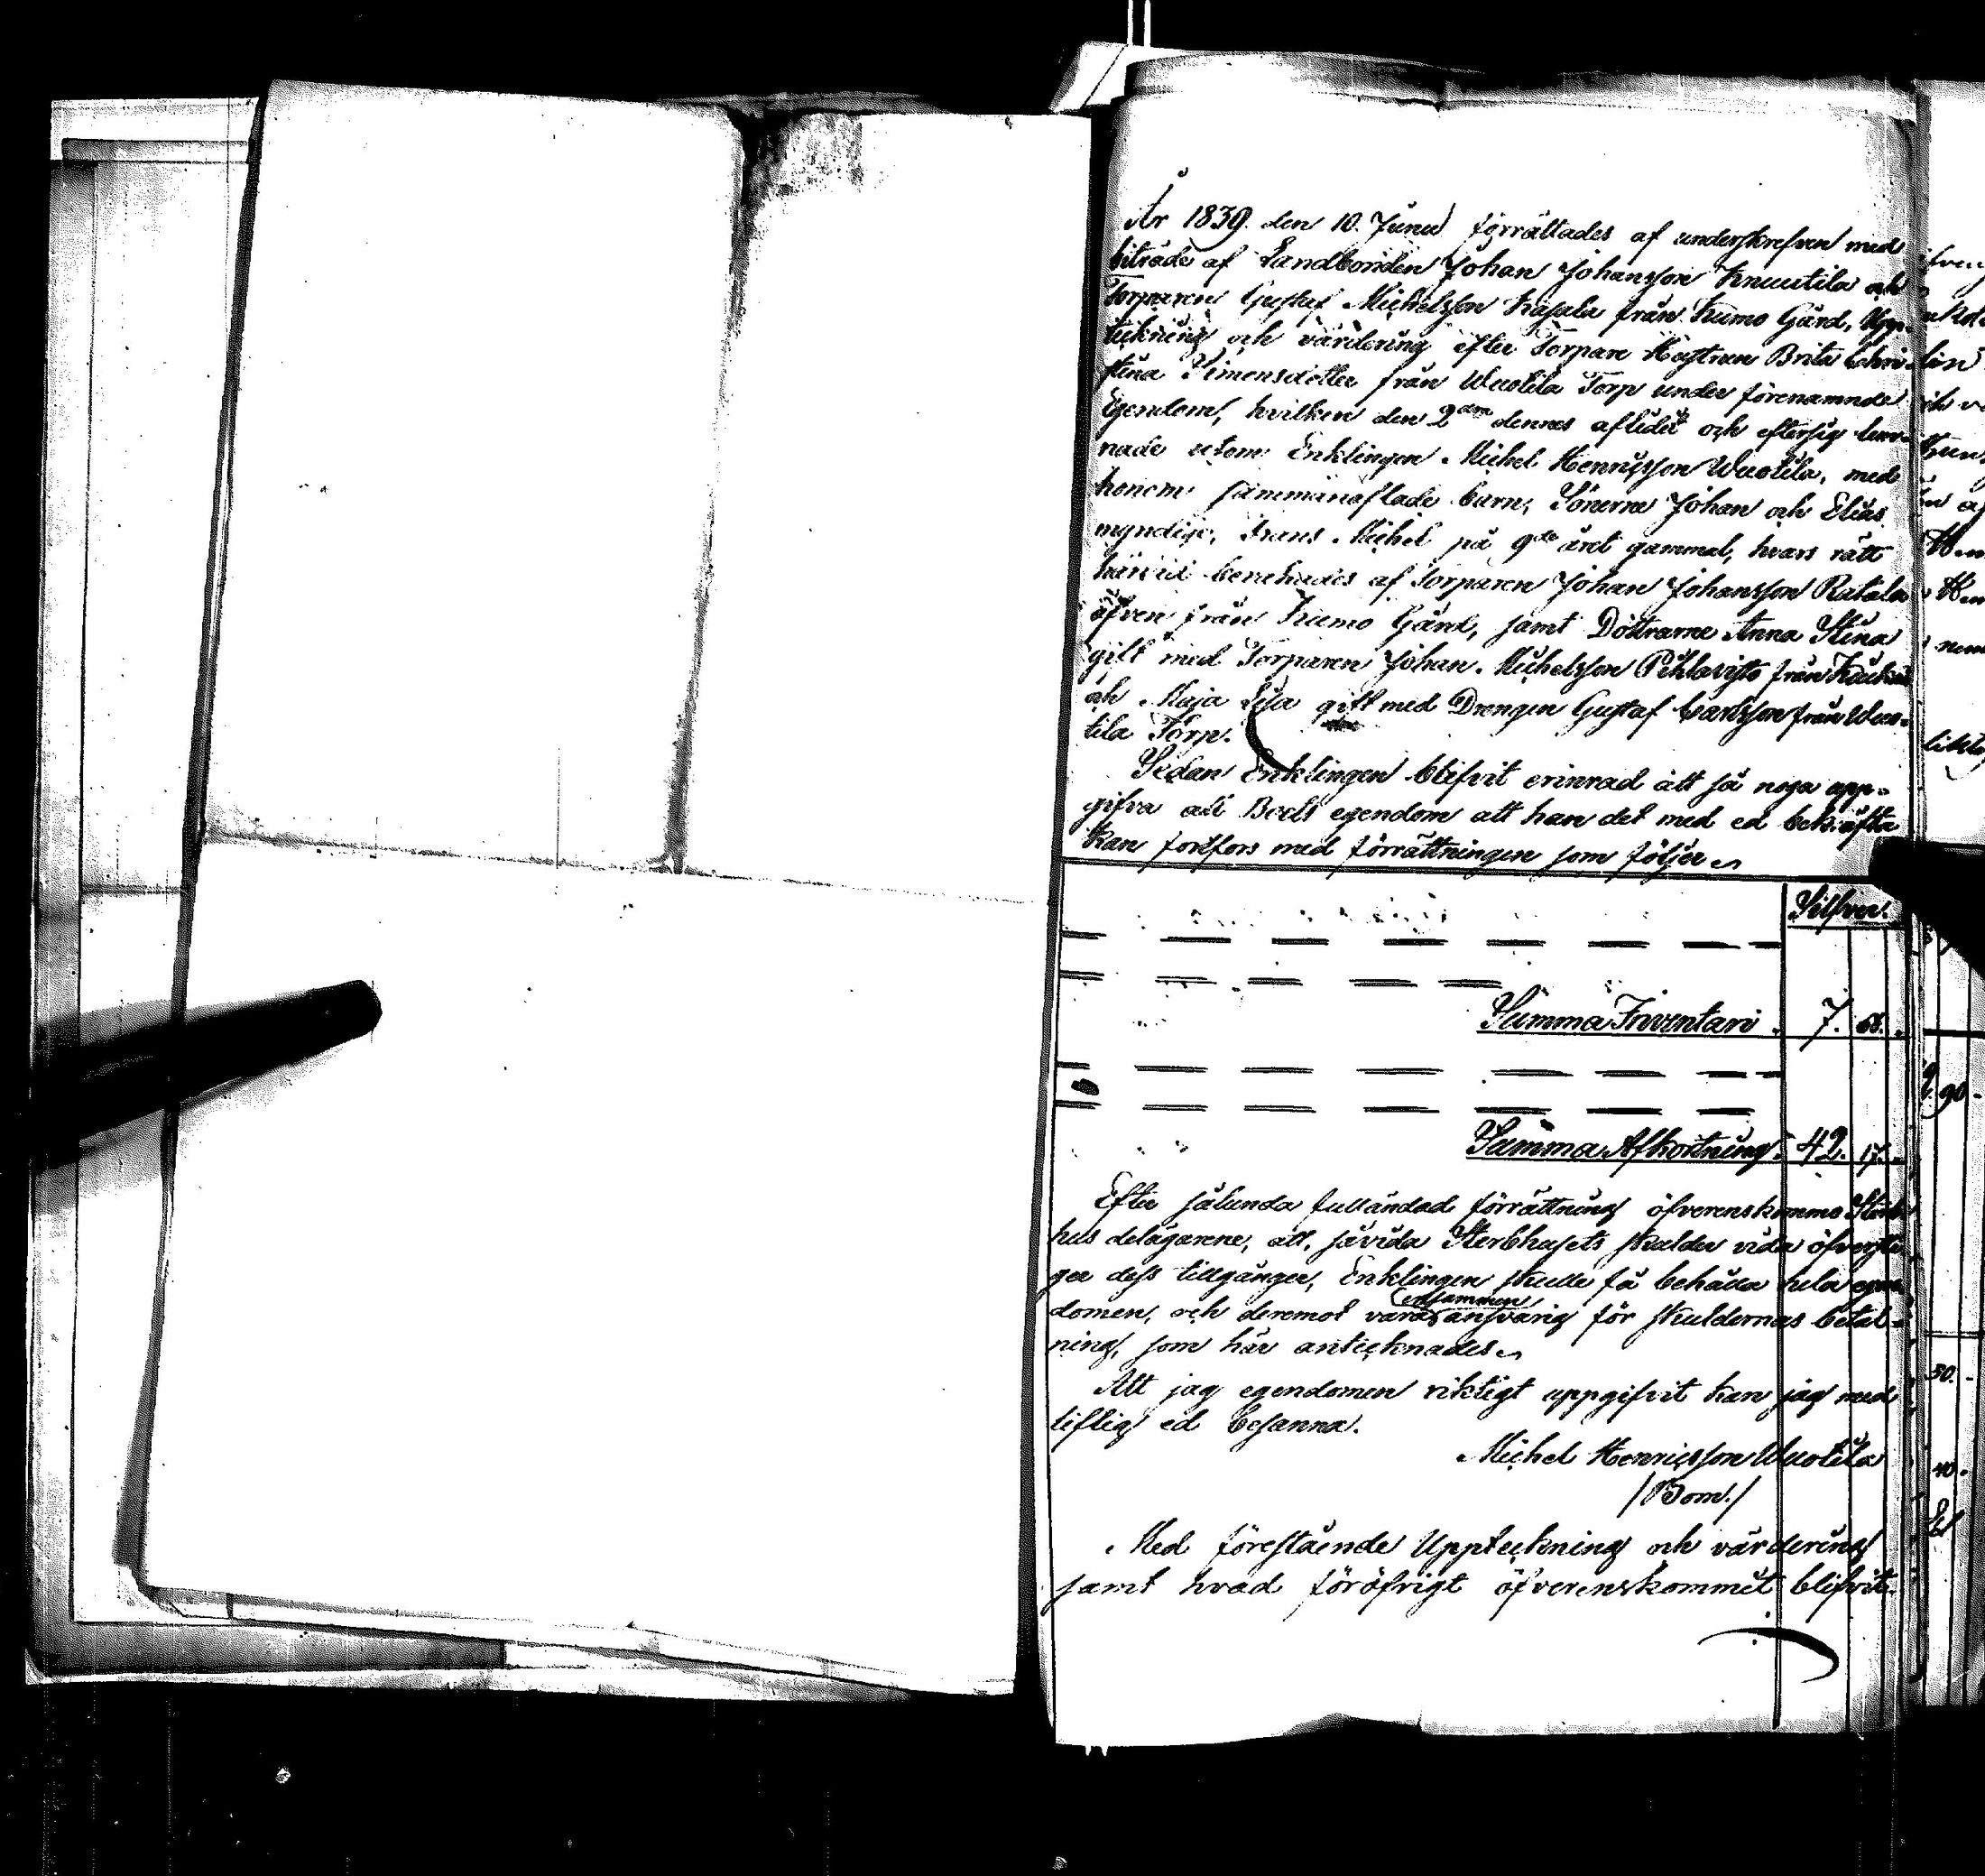 År 1839. den 10. Junii förrättades af underskrefven med
biträde af Landbonden Johan Johansson Knuutila och
Torparen Gustaf Michelsson Kasala från Kumo Gård, Upp-
teckning och värdering efter Torpare Hustrun Brita Chri-
stina Simonsdotter från Wuotila Torp under förenämnde
Egendom, hvilken den 2dra dennes aflidit och eftersig lem-
nade utom Enklingen Michel Henricsson Wuotila, med
honom sammanaflade barn, Sönerne Johan och Elias
myndige, Frans Michel på 9de året gammal, hvars rätt
härvid bevakades af Torparen Johan Johansson Ratala
äfven från Kumo Gård, samt Döttrarne Anna Stina
gift med Torparen Johan Michelsson Pihlavisto från
och Maja Lisa gift med Drengen Gustaf Carlsson från Wuo-
tila Torp.
Sedan Enklingen blifvit erinrad att så noga upp-
gifva all Boets egendom att han det med ed bekräfta
kan fortfors med förrättningen som följer
Silfver.
Summa Inventari. 7. 68.
Summa Afkortning. 42. 17.
Efter sålunda fulländad förrättning öfverenskommo Sterb-
hus delägarene, att, såvida Sterbhusets skulder vida öfversti-
ger dess tillgångar, Enklingen skulle få behålla hela egen-
domen, och deremot vara ensammen ansvarig för skuldernas betal-
ning, som här antecknades
Att jag egendomen riktigt uppgifvit kan jag med
liflig ed besanna.
Michel Henricsson Wuotila
/Bom./
Med förestående Uppteckning och värdering
samt hvad föröfrigt öfverenskommit blifvit
90
50.
40.